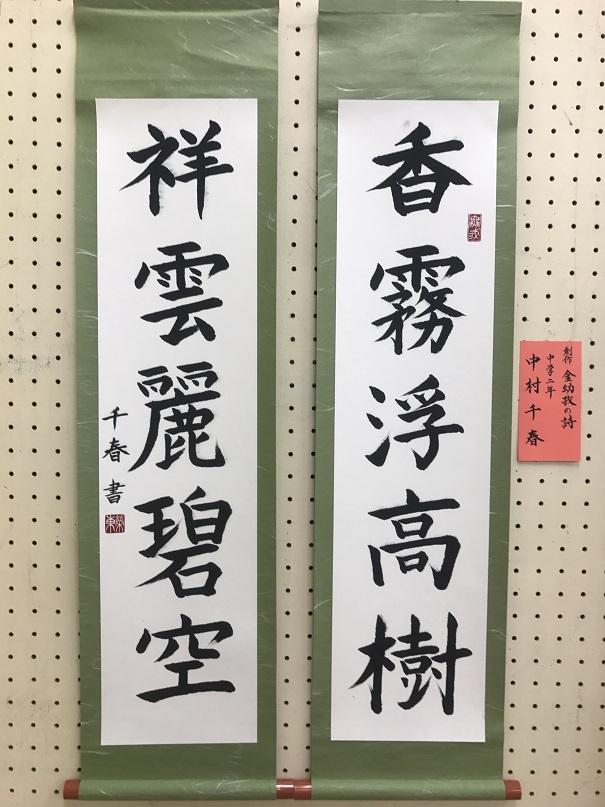 香霧浮高樹
祥雲麗碧空
千春書
創作 金幼孜の詩
中学二年
中村千春